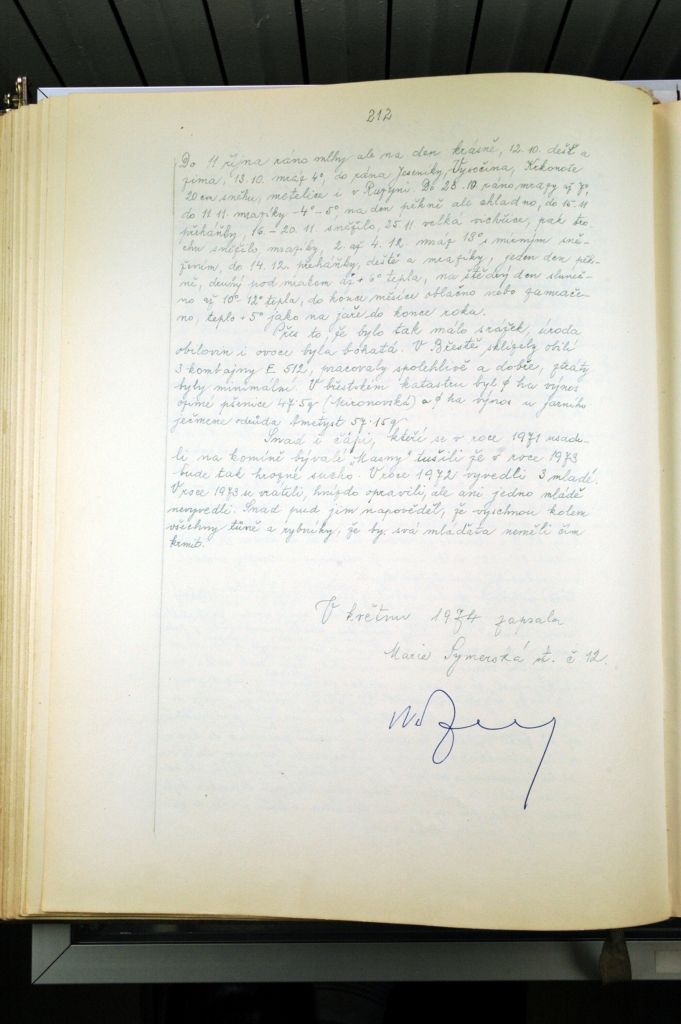 212
Do 11 října ráno mlhy ale na den krásně, 12.10. déšť a
zima, 13.10. mráz 4°, do rána Jeseníky, Vysočina, Krkonoše
20 cm sněhu, metelice i v Ruzyni. Do 28.10 ráno mrazy až 7°,
do 11 11. mrazíky -4°-5° na den pěkně ale chladno, do 15.11
přeháňky, 16.-20.11 sněžilo, 25 11 velká vichřice, pak tro-
chu sněžilo, mrazíky, 2. až 4. 12. mráz 13° s mírným sně-
žením, do 14.12. přeháňky, deště a mrazíky, jeden den pěk-
ně, druhý pod mrakem až +6° tepla, na štědrý den sluneč-
no až 10° 12° tepla, do konce měsíce oblačno nebo zamrače-
no, teplo +5° jako na jaře do konce roka.
Přes to, že bylo tak málo srážek, úroda
obilovin i ovoce byla bohatá. V Břestě sklízely obilí
3 kombajny E 512, pracovaly spolehlivě a dobře, ztráty
byly minimální. V břestském katastru byl ϕ ha výnos
ozimé pšenice 47.5q (Mironovská) a ϕ ha výnos u jarního
ječmene odrůda Ametyst 57.15q.
Snad i čápi, kteří se v roce 1971 usadi-
li na komíně bývalé "Masny" tušili že v roce 1973
bude tak hrozné sucho. V roce 1972 vyvedli 3 mladé.
V roce 1973 se vrátili, hnízdo opravili, ale ani jedno mládě
nevyvedli. Snad pud jim napověděl, že vyschnou kolem
všechny tůně a rybníky, že by svá mláďata neměli čím
krmit.
V květnu 1974 zapsala
Marie Symerská st. č 12.